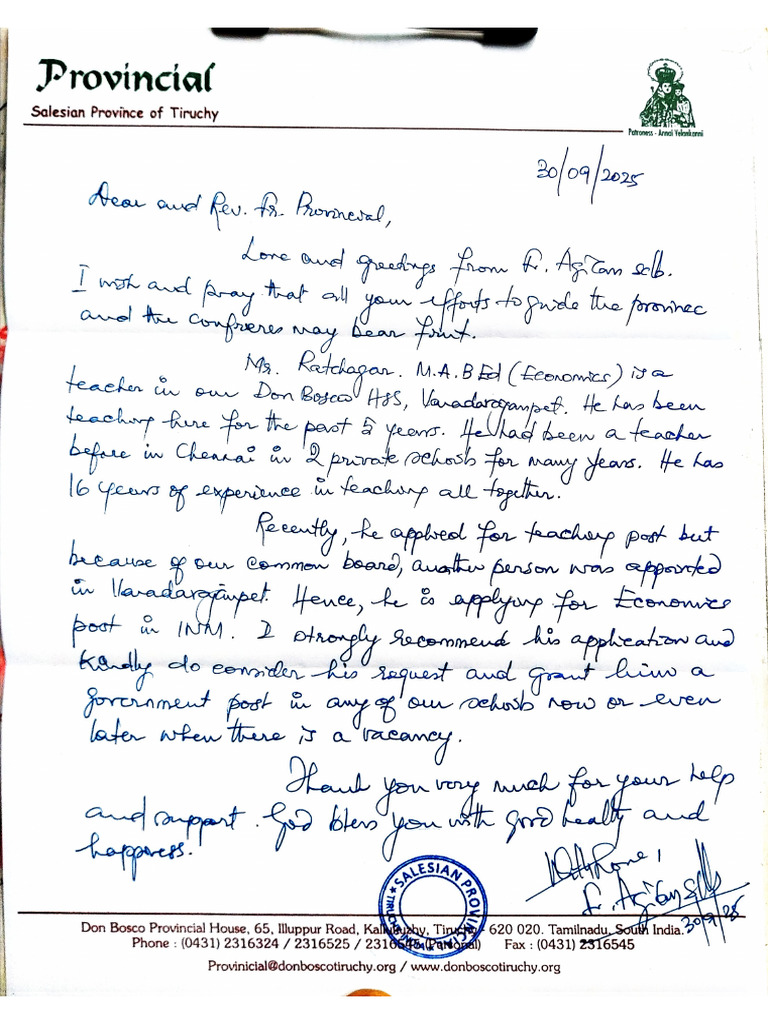 Provincial
Salesian Province of Tiruchy
Patroness - Annai Velankanni
30/09/2025
Dear and Rev. Fr. Provincial,
Love and greetings from Fr. Agilan sdb.
I wish and pray that all your efforts to guide the province
and the confreres may bear fruit.
Mr. Ratchagar. M.A.B Ed (Economics) is a
teacher in our Don Bosco HSS, Varadarajanpet. He has been
teaching here for the past 5 years. He had been a teacher
before in Chennai in 2 private schools for many years. He has
16 years of experience in teaching all together.
Recently, he applied for teaching post but
because of our common board, another person was appointed
in Varadarajanpet. Hence, he is applying for Economics
post in INM. I strongly recommend his application and
kindly do consider his request and grant him a
government post in any of our schools now or even
later when there is a vacancy.
Thank you very much for your help
and support. God bless you with good health and
happiness.
With love,
Fr. Agilan sdb
30/9/25
SALESIAN PROVINCE
Don Bosco Provincial House, 65, Illuppur Road, Kallukuzhy, Tiruchy - 620 020. Tamilnadu, South India.
Phone : (0431) 2316324 / 2316525 / 2316545 (Personal) Fax : (0431) 2316545
Provinicial@donboscotiruchy.org / www.donboscotiruchy.org